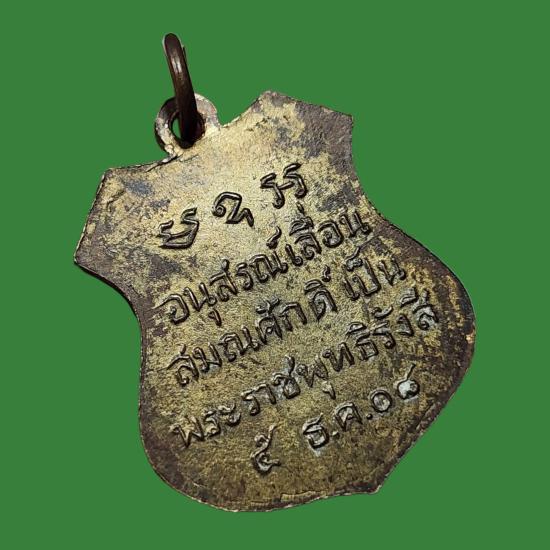 อนุสรณ์เลื่อน
สมณศักดิ์ เป็น
พระราชพุทธิรังสี
๕ ธ.ค.๑๘